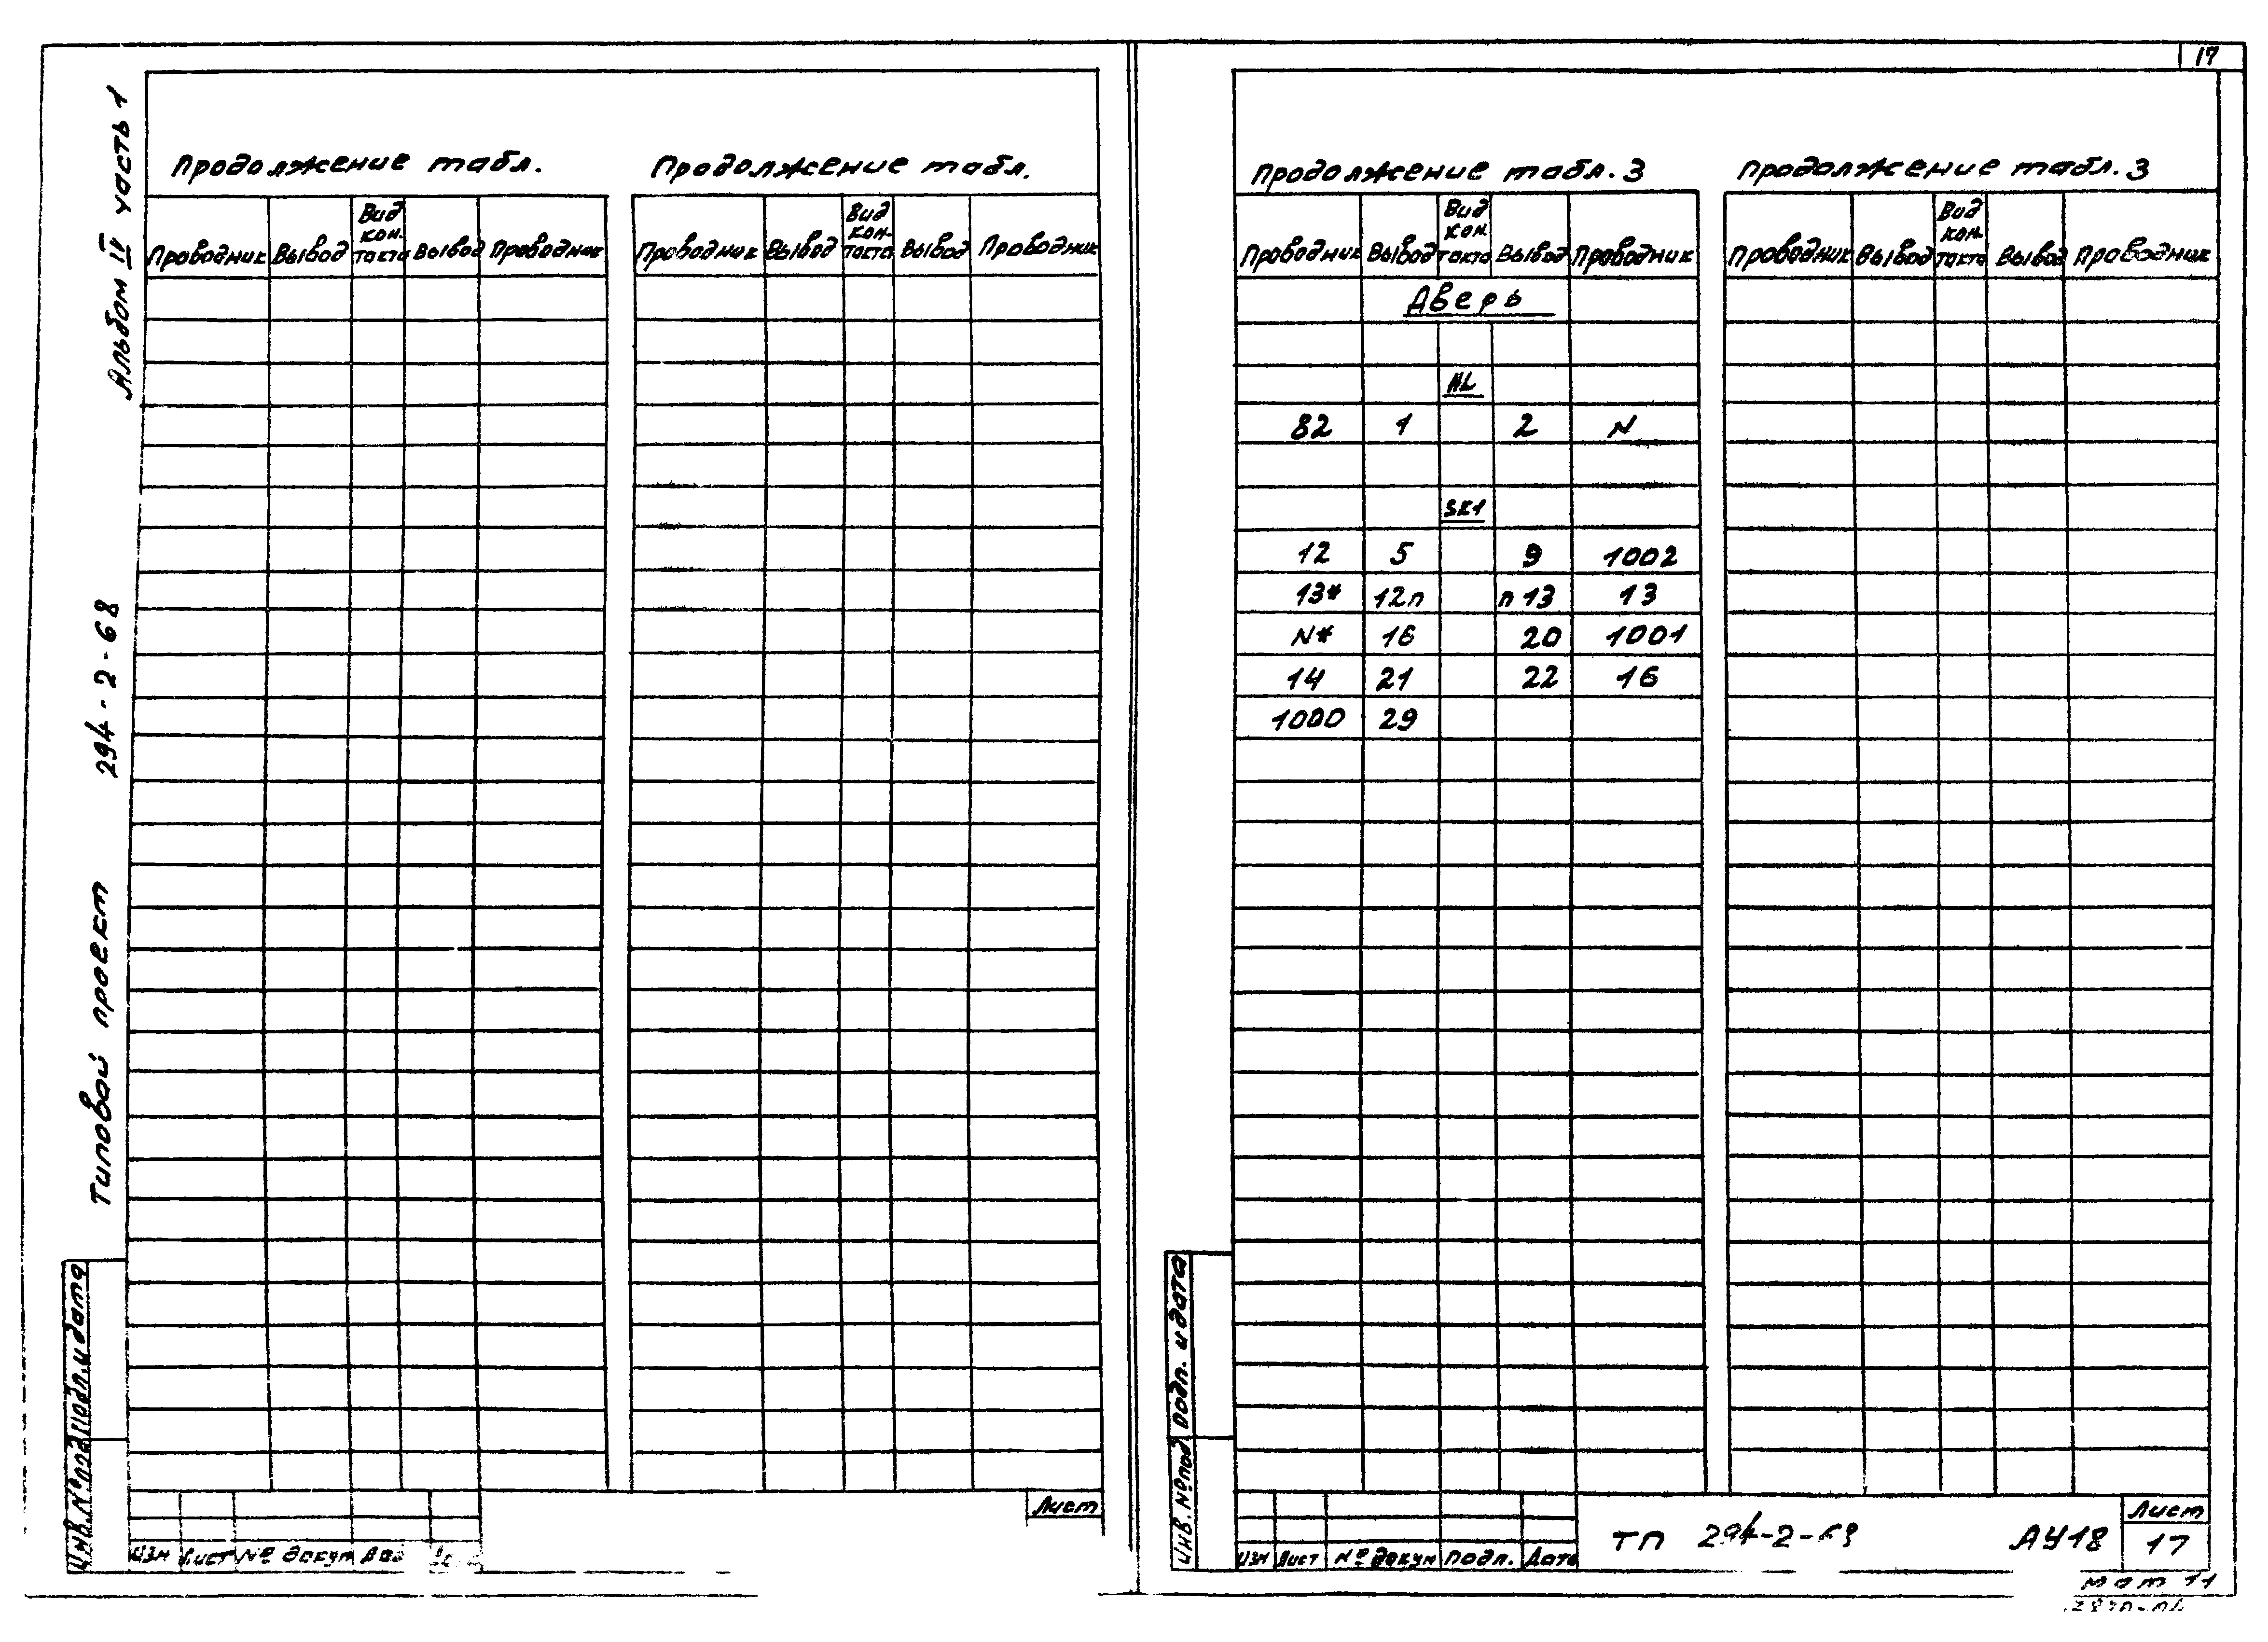 17
Альбом IV часть 1
294-2-68
Типовой проект
Продолжение табл.
Проводник Вывод Вид кон. такта Вывод Проводник
Продолжение табл.
Проводник Вывод Вид кон. такта Вывод Проводник
Инв. № под Подп. и дата
Изм Лист № докум
Лист
Продолжение табл. 3
Проводник Вывод Вид кон. такта Вывод Проводник
Дверь
HL
82 1 2 N
SK1
12 5 9 1002
13* 12п п 13 13
N* 16 20 1001
14 21 22 16
1000 29
Продолжение табл. 3
Проводник Вывод Вид кон. такта Вывод Проводник
Инв. № под Подп. и дата
Изм Лист № докум Подп. Дата
ТП 294-2-68 АУ18
Лист
17